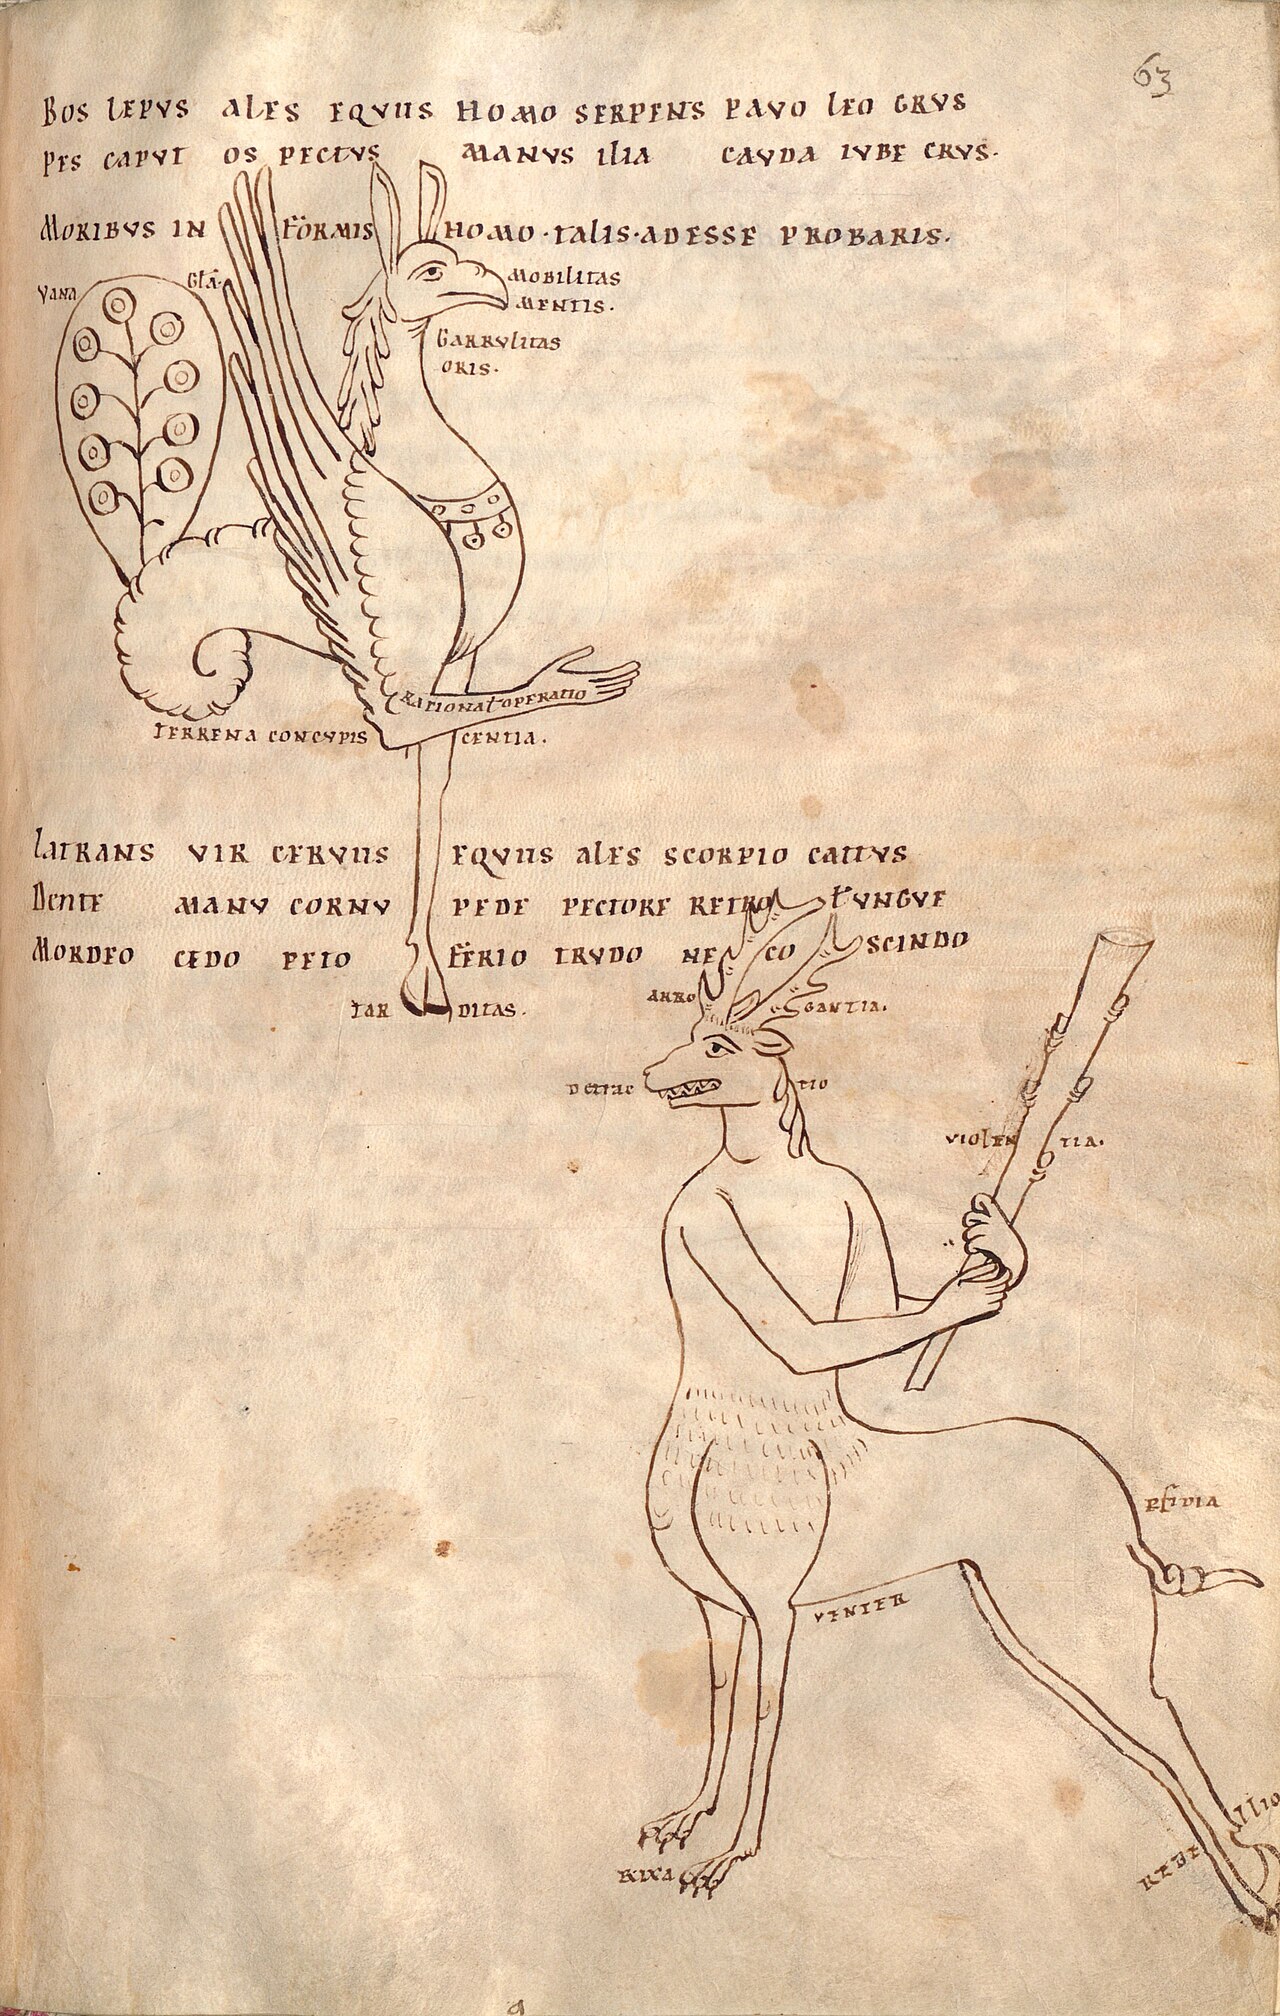 63
BOS LEPVS ALES EQVUS HOMO SERPENS PAVO LEO GRVS
PES CAPVT OS PECTVS MANVS ILIA CAVDA IVBE CRVS.
MORIBVS IN FORMIS HOMO·TALIS·ADESSE PROBARIS.
VANA GLA.
MOBILITAS
MENTIS.
GARRVLITAS
ORIS.
RATIONAL OPERATIO
TERRENA CONCVPISCENTIA.
LATRANS VIR CERVUS EQVUS ALES SCORPIO CATTVS
DENTE MANV CORNV PEDE PECTORE RETRO VNGVE
MORDEO CEDO PETO FERIO TRVDO NECO SCINDO
TARDITAS.
ARROGANTIA.
DETRACTIO
VIOLENTIA.
VENTER
RIXA
REBELLIO